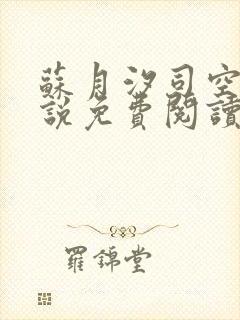 蘇月汐司空
說免費閱讀
羅錦堂